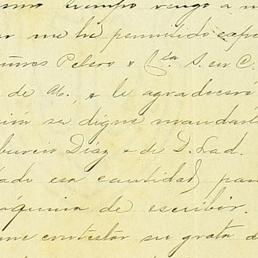 mo tiempo vengo a m
me he permitido expo
Pelser & Cía S. en C.
de U., a le agradeceré
se digne mandar
burcio Díaz o de D. Lad.
ado esa cantidad, para
áquina de escribir.
me contestar su grata d